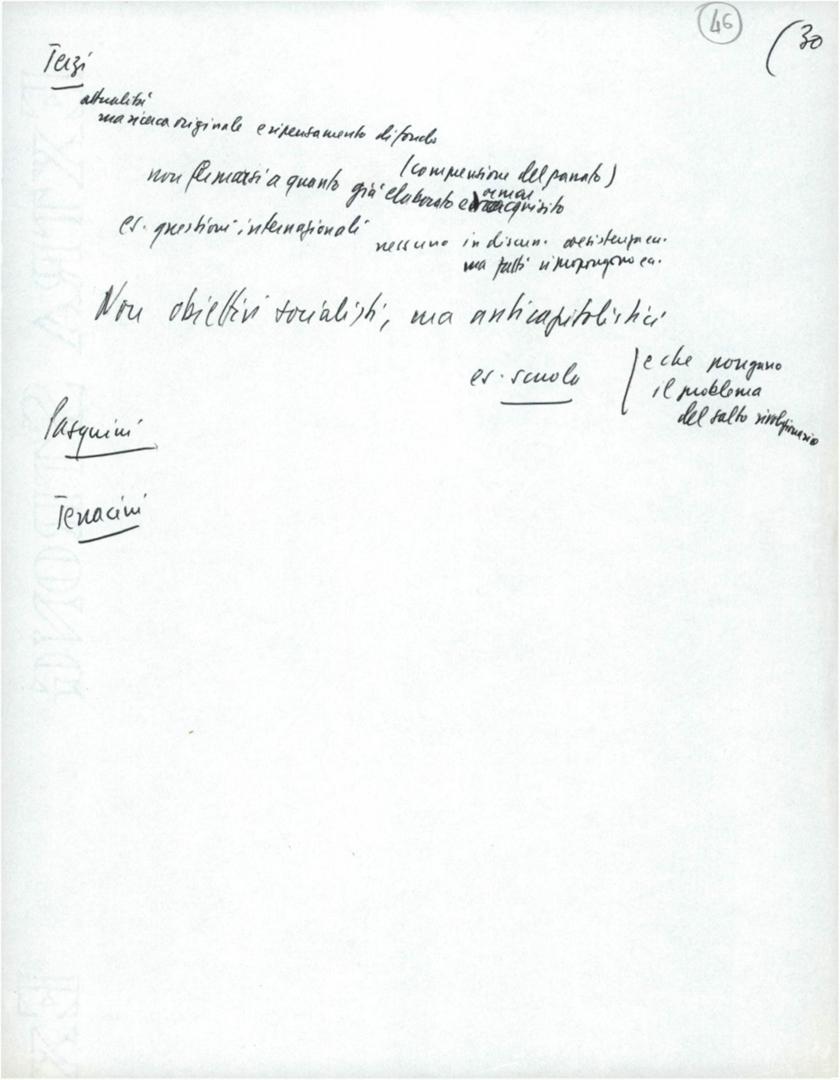 46
(30
Terzi
attualità
ma ricerca originale e ripensamento di fondo
(comprensione del passato)
non fermarsi a quanto già elaborato e acquisito
ormai
es. questioni internazionali
nessuno in discuss. coesistenza ecc.
ma fatti ripropongono ecc.
Non obiettivi socialisti, ma anticapitalistici
es. scuola
e che pongano
il problema
del salto rivoluzionario
Pasquini
Terracini